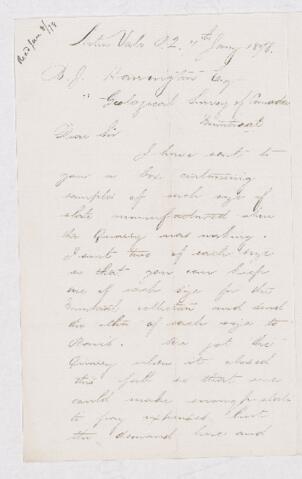 Recd Jan 8/78
P.Q. 7th Jany 1878.
B. J. Harrington Esq
Geological Survey of Canada
Montreal
Dear Sir
I have sent to
you a box containing
samples of each size of
slate manufactured when
the Quarry was working.
I sent two of each size
so that you can keep
one of each size for the
Montreal collection and send
the other of each size to
We got the
Quarry when it closed
this fall so that we
could make enough slate
to pay expenses, but
the demand here and